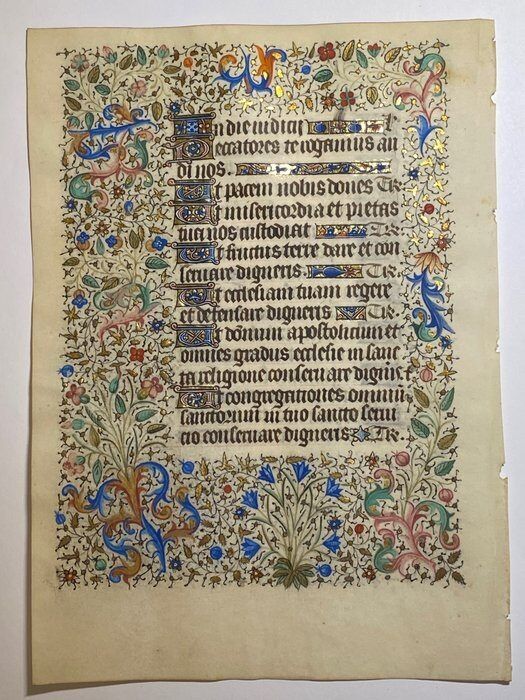 In die iudicii
Peccatores te rogamus au
di nos.
Ut pacem nobis dones Te r.
Ut misericordia et pietas
tua nos custodiat Te r.
Ut fructus terre dare et con
seruare digneris. Te r.
Ut ecclesiam tuam regere
et defensare digneris Te r.
Ut domnum apostolicum et
omnes gradus ecclesie in sanc
ta religione conseruare digneris
Ut congregationes omnium
sanctorum in tuo sancto serui
cio conseruare digneris Te r.